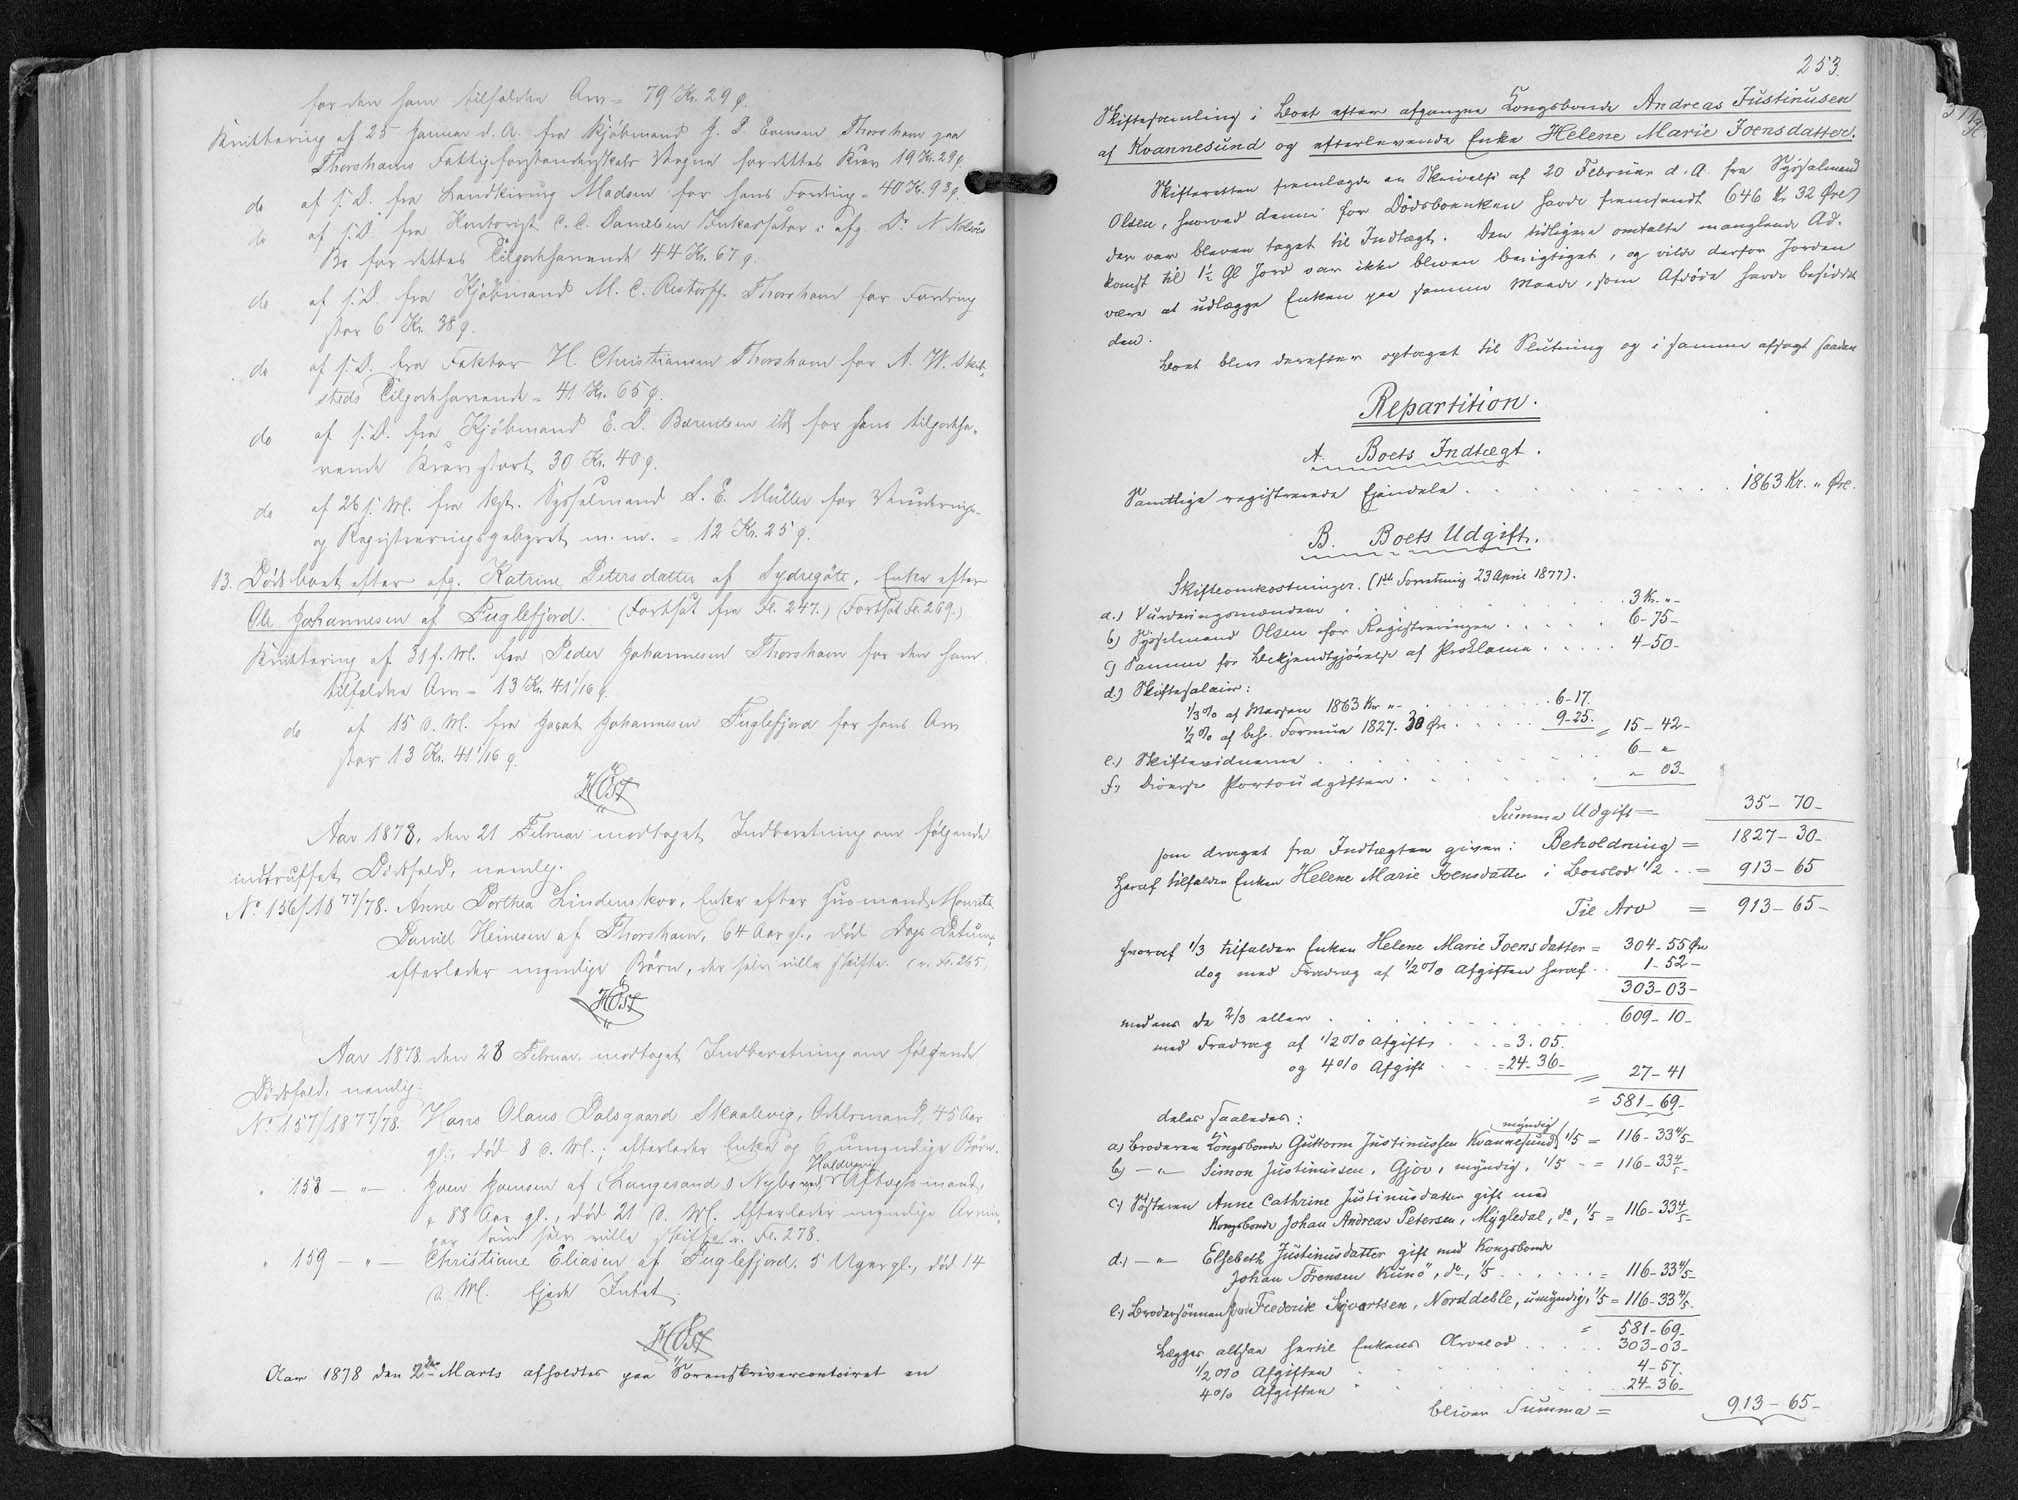 for den ham tilfaldne Arv = 79 Kr. 29 ø.
Kvittering af 25 Januar d. A. fra Kjøbmand J. P. Thorshavn paa
Thorshavns Fattigforstanderskabs Vegne for dettes Krav 19 Kr. 29 ø.
do af s. D. fra Landkirurg Madsen for hans Fordring = 40 Kr. 93 ø.
do af s. D. fra Kontorist C. C. Danielsen Inkassator i afg. Dr N. Nolsøes
Bo for dettes Tilgodehavende 44 Kr. 67 ø.
do af s. D. fra Kjøbmand M. C. Restorff Thorshavn for Fordring
stor 6 Kr. 38 ø.
do af s. D. fra Faktor H. Christiansen Thorshavn for A. W.
Tilgodehavende = 41 Kr. 65 ø.
do af s. D. fra Kjøbmand E. D. Bærentsen ibd for hans tilgodeha-
vende Krav stort 30 Kr. 40 ø.
do af 26 s. M. fra kst. Sysselmand S. E. Müller for Vurderings-
og Registreringsgebyret m. m. = 12 Kr. 25 ø.
13. Dødsboet efter afg. Katrine Petersdatter af Sydregöte, Enke efter
Ole Johannesen af Fuglefjord. (Fortsat fra Fl. 247.) (Fortsat Fl. 269.)
Kvittering af 31 f. M. fra Peder Johannesen Thorshavn for den ham
tilfaldne Arv = 13 Kr. 41 1/16 ø.
do af 15 d. M. fra Johannesen Fuglefjord for hans Arv
stor 13 Kr. 41 1/16 ø.
HOst
Aar 1878, den 21 Februar modtaget Indberetning om følgende
indtruffet Dødsfald, nemlig:
No 156/1877/78. Anne Dorthea Lindenskov, Enke efter Huusmand
Daniel Heinesen af Thorshavn, 64 Aar gl., død Dags Datum,
efterlader myndige Børn, der selv ville skifte. (v. Fl. 265.
HOst
Aar 1878 den 28 Februar modtaget Indberetning om følgende
Dødsfald, nemlig:
No 157/1877/78. Hans Olaus Dalsgaard Skaalevig, Odelsmand, 45 Aar
gl., død 8 d. M.; efterlader Enke og 6 umyndige Børn.
" 158 — " — Joen Joensen af (Langesand) Nybo ved Haldersvig Aftægtsmand,
88 Aar gl., død 21 d. M. Efterlader myndige Arvin-
ger som selv ville skifte v. Fl. 278.
" 159 — " — Christiane Eliasen af Fuglefjord, 5 Uger gl., død 14
d. M. Ejede Intet.
HOst
Aar 1878 den 2den Marts afholdtes paa Sorenskrivercontoiret en
253.
Skiftesamling i Boet efter afgangne Kongsbonde Andreas Justinusen
af Kvannesund og efterlevende Enke Helene Marie Joensdatter.
Skifteretten fremlagde en Skrivelse af 20 Februar d. A. fra Sysselmand
Olsen, hvorved denne for Dødsboenken havde fremsendt 646 Kr 32 Øre,
der var bleven taget til Indtægt. Den tidligere omtalte manglende Ad-
komst til 1½ Gl Jord var ikke bleven berigtiget, og vilde derfor Jorden
være at udlægge Enken paa samme Maade, som Afdøde havde besiddet
den.
Boet blev derefter optaget til Slutning og i samme afsagt saadan
Repartition.
A. Boets Indtægt.
Samtlige registrerede Ejendele . . . 1863 Kr. " Øre.
B. Boets Udgift.
Skifteomkostninger. (1ste Forretning 23 April 1877).
a.) Vurderingsmændene . . . 3 Kr. " -
b) Sysselmand Olsen for Registreringen . . . 6-75-
c) Samme for Bekjendtgjørelse af Proklama . . . 4-50-
d.) Skiftesalair:
1/3 % af Massen 1863 Kr " - . . . 6-17.
1/2 % af beh. Formue 1827. 30 Øre . . . 9-25. = 15-42-
e.) Skiftevidnerne . . . 6- "
f.) Diverse Portoudgifter . . . " 03-
Summa Udgift = 35-70-
som draget fra Indtægten giver: Beholdning = 1827-30-
Heraf tilfalder Enken Helene Marie Joensdatter i Boeslod 1/2 . . = 913-65
Til Arv = 913-65-
hvoraf 1/3 tilfalder Enken Helene Marie Joensdatter = 304-55 Øre
dog med Fradrag af 1/2 % Afgiften heraf . . 1-52-
303-03-
medens de 2/3 eller . . . 609-10-
med Fradrag af 1/2 % Afgift . . . = 3.05.
og 4 % Afgift . . . = 24-36- = 27-41
= 581-69-
deles saaledes:
a) Broderen Kongsbonde Guttorm Justinussen Kvannesund, myndig, 1/5 = 116-33 4/5-
b) — " — Simon Justinussen, Gjov, myndig, 1/5 - = 116-33 4/5-
c.) Søsteren Anne Cathrine Justinusdatter gift med
Kongsbonde Johan Andreas Petersen, Mygledal, do, 1/5 = 116-33 4/5-
d.) — " — Elsebeth Justinusdatter gift med Kongsbonde
Johan Sörensen Kunö, do, 1/5 . . . = 116-33 4/5-
e.) Brodersönnen Frederik Sivertsen, Norddeble, umyndig, 1/5 = 116-33 4/5.
= 581-69-
Lægges altsaa hertil Enkens Arvelod . . . 303-03-
1/2 % Afgiften . . . 4-57.
4 % Afgiften . . . 24-36-
bliver Summa = 913-65-